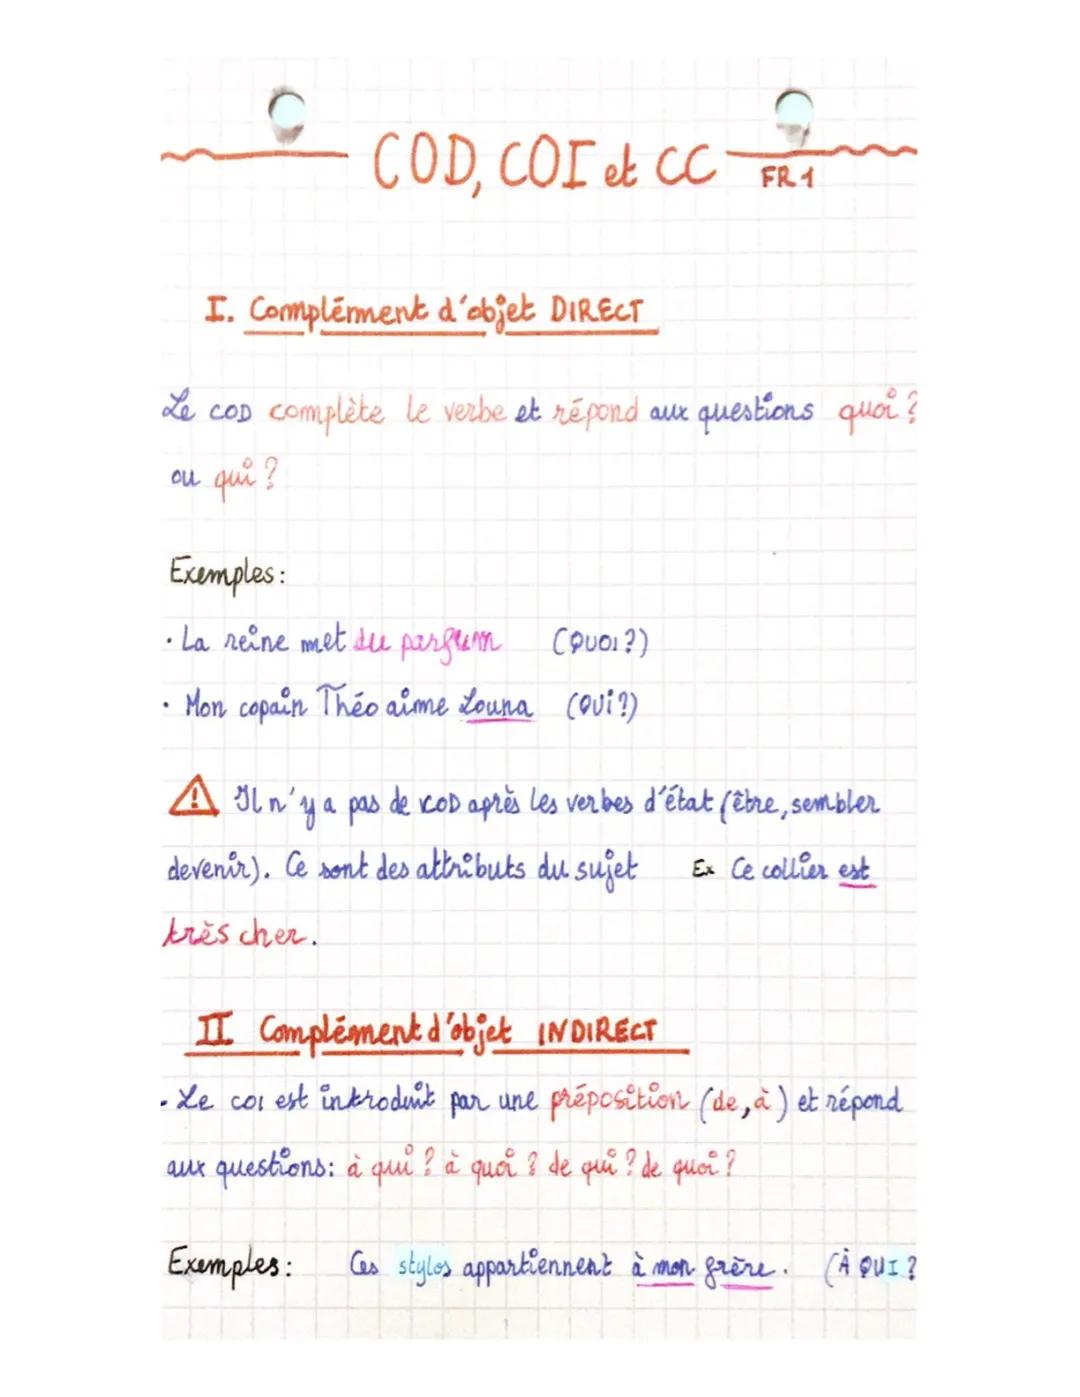 COD, COI et CC
FR 1
I. Complément d'objet DIRECT
Le COD complète le verbe et répond aux questions quoi ?
ou qui ?
Exemples :
· La reine met du parfum (QUOI ?)
· Mon copain Théo aime Louna (QUI ?)
⚠ Il n'y a pas de COD après les verbes d'état (être, sembler
devenir). Ce sont des attributs du sujet Ex Ce collier est
très cher.
II Complément d'objet INDIRECT
· Le COI est introduit par une préposition (de, à) et répond
aux questions : à qui ? à quoi ? de qui ? de quoi ?
Exemples : Ces stylos appartiennent à mon frère. (À QUI ?